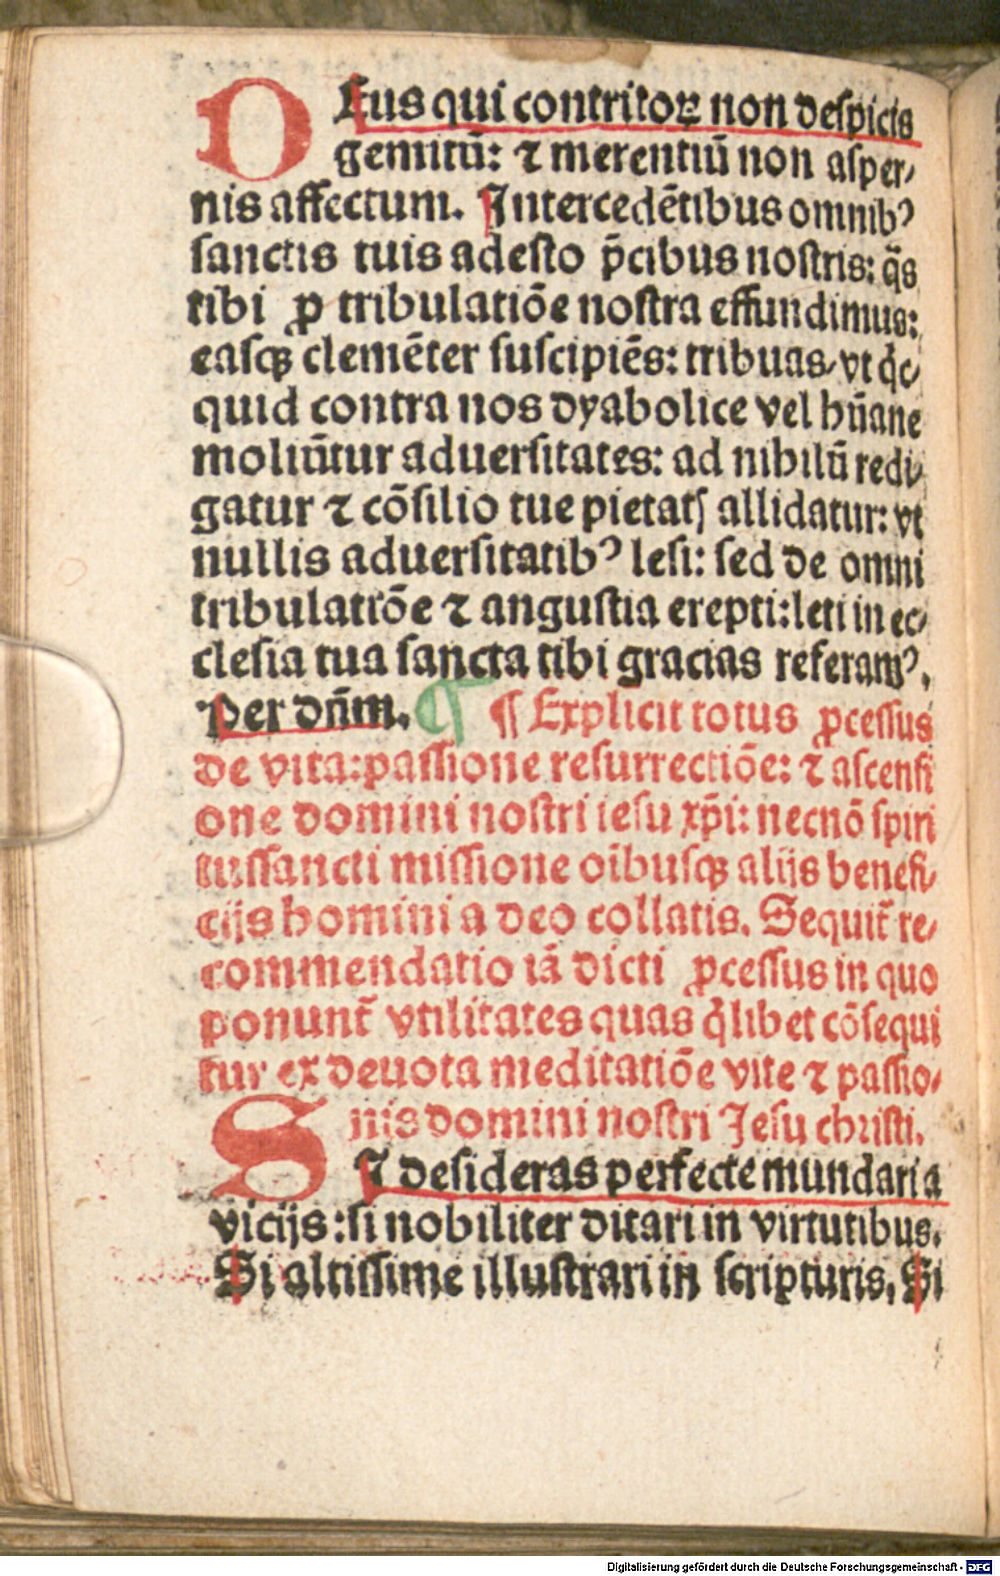 DEus qui contritoꝝ non despicis
gemitū: ⁊ merentiū non asper⸗
nis affectum. Intercedētibus omnibꝰ
sanctis tuis adesto p̄cibus nostris: q̄s
tibi ꝓ tribulatiōe nostra effundimus:
easqꝫ clemēter suscipiēs: tribuas/ vt qͥc⸗
quid contra nos dyabolice vel hūane
moliūtur aduersitates: ad nihilū redi⸗
gatur ⁊ cōsilio tue pietatꝭ allidatur: vt
nullis aduersitatibꝰ lesi: sed de omni
tribulatiōe ⁊ angustia erepti: leti in ec⸗
clesia tua sancta tibi gracias referamꝰ.
Per dn̄m. ¶ ¶ Explicit totus ꝓcessus
de vita: passione resurrectiōe: ⁊ ascensi
one domini nostri iesu xp̄i: necnō spiri
tussancti missione oībusqꝫ alijs benefi⸗
cijs homini a deo collatis. Sequit̄ re⸗
commendatio iā dicti ꝓcessus in quo
ponunt̄ vtilitates quas qͥlibet cōsequi
tur ex deuota meditatiōe vite ⁊ passio⸗
nis domini nostri Jesu christi.
SI desideras perfecte mundari a
vicijs: si nobiliter ditari in virtutibus.
Si altissime illustrari in scripturis. Si
Digitalisierung gefördert durch die Deutsche Forschungsgemeinschaft - DFG